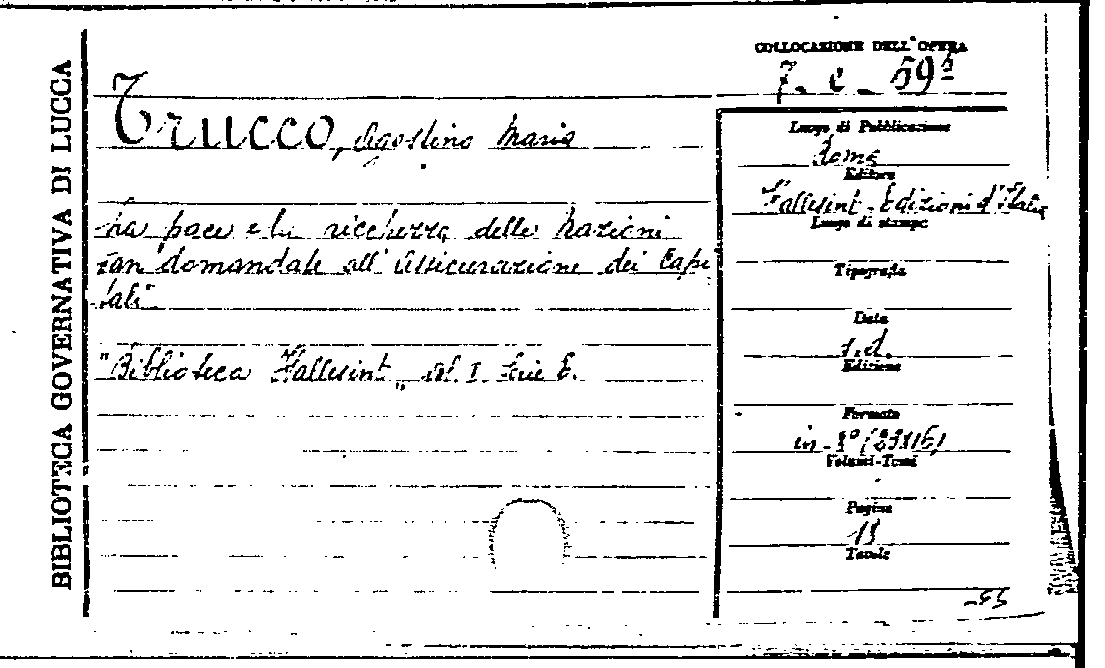 BIBLIOTECA GOVERNATIVA DI LUCCA
COLLOCAZIONE DELL'OPERA
7. e. 59
Trucco, Agostino Maria
La pace e la ricchezza delle Nazioni
domandate all'Assicurazione dei Capi
tali".
"Biblioteca Fallesint„ vol. I. Serie E.
Luogo di Pubblicazione
Roma
Editore
Fallesint - Edizioni d'Italia
Luogo di stampa
Tipografia
Data
s.d.
Edizione
Formato
in-8°
Volumi-Tomi
Pagine
Tavole